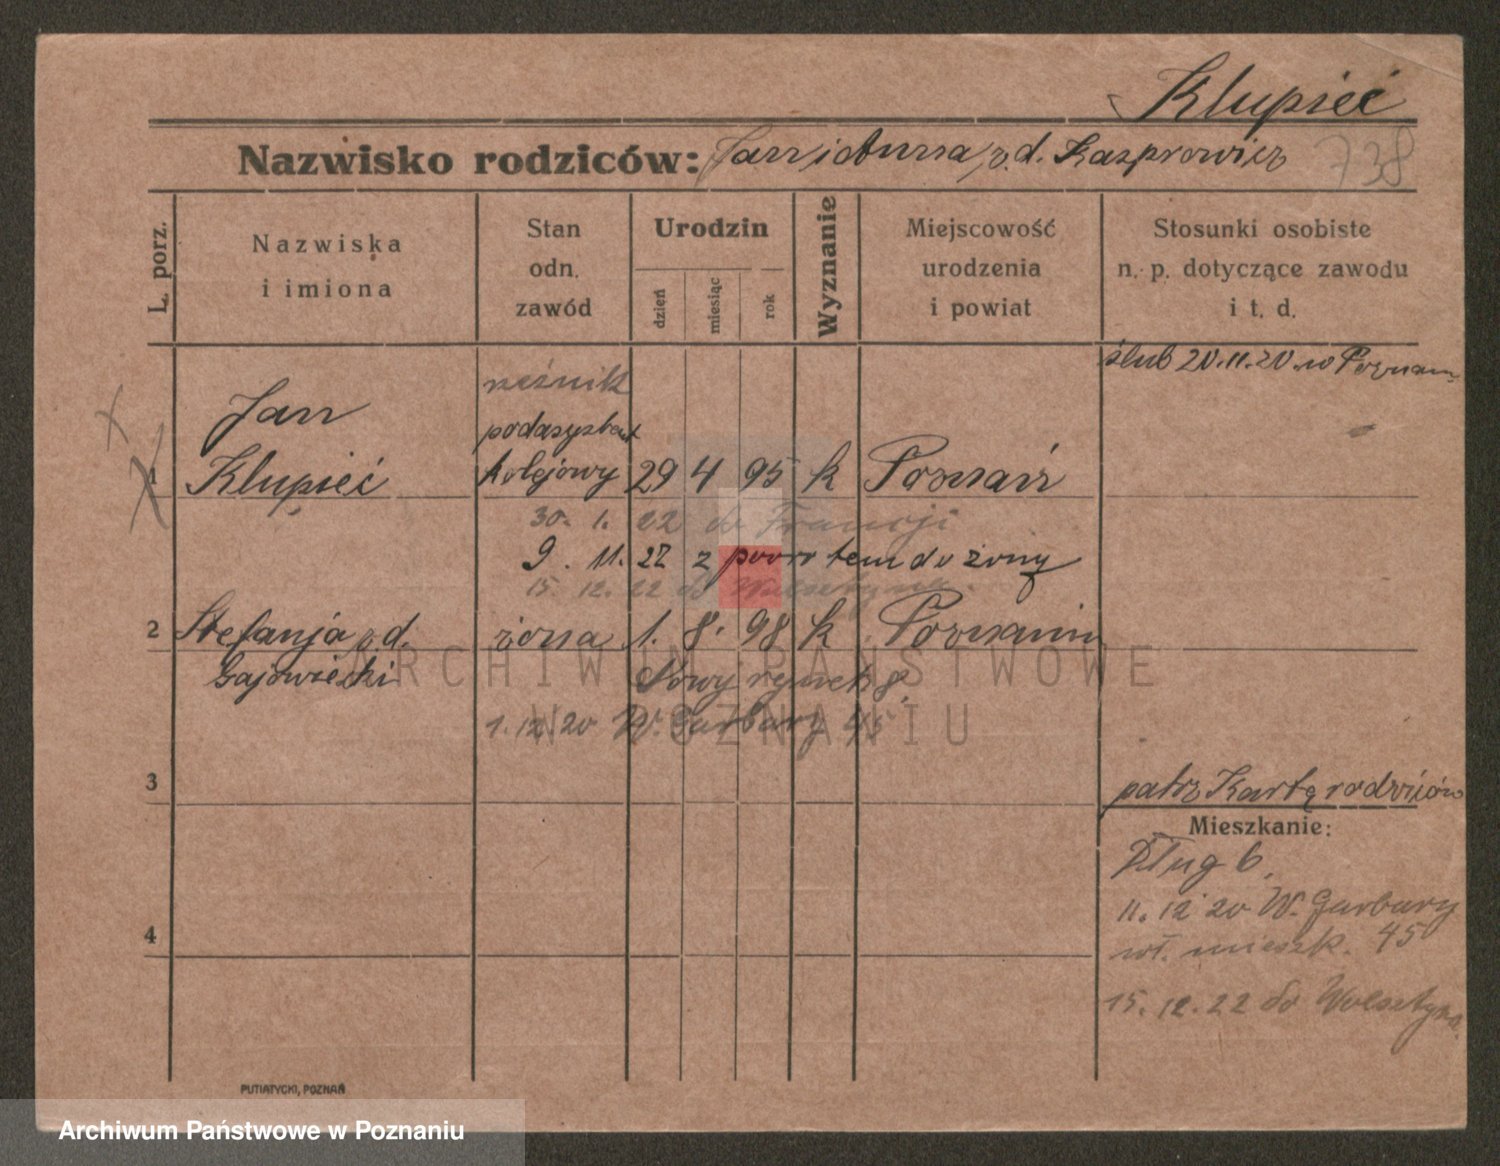 Klupieć
Nazwisko rodziców: Jan i Anna z d. Kasprowicz 738
L. porz.
Nazwiska
i imiona
Stan
odn.
zawód
Urodzin
dzień
miesiąc
rok
Wyznanie
Miejscowość
urodzenia
i powiat
Stosunki osobiste
n. p. dotyczące zawodu
i t. d.
ślub 20.11.20. w Poznaniu
rzeźnik
Jan
1 Klupieć kolejowy 29 4 95 k Poznań
30. 1. 22 do Francji
9. 11. 22 z powrotem do żony
15. 12. 22 do Wolsztyna.
2 Stefanja z d. żona 1. 8. 98 k Poznaniu
Gajowiecki Nowy rynek 8,
1.12.20 W. Garbary 45
ARCHIWUM PAŃSTWOWE
W POZNANIU
3
patrz Kartę rodziców
Mieszkanie:
Dług 6,
11. 12 20 W. Garbary
wł. mieszk. 45
4
15. 12. 22 do Wolsztyna.
PUTIATYCKI, POZNAŃ
Archiwum Państwowe w Poznaniu